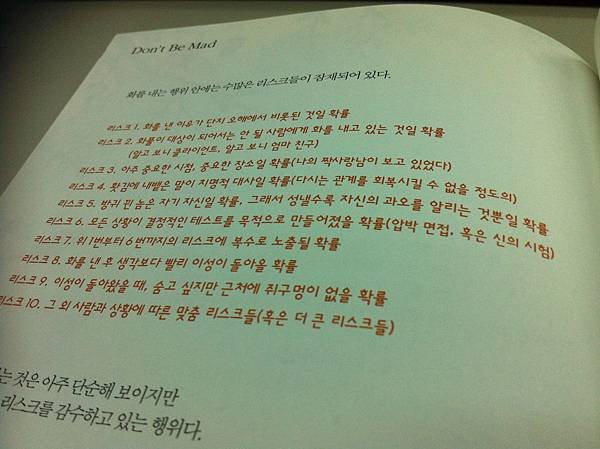 Don't Be Mad
화를 내는 행위 안에는 수많은 리스크들이 잠재되어 있다.
리스크 1. 화를 낸 이유가 단지 오해에서 비롯된 것일 확률
리스크 2. 화풀이 대상이 되어서는 안 될 사람에게 화를 내고 있는 것일 확률
(알고 보니 클라이언트, 알고 보니 엄마 친구)
리스크 3. 아주 중요한 시점, 중요한 장소일 확률(나의 짝사랑남이 보고 있었다)
리스크 4. 홧김에 내뱉은 말이 치명적 대사일 확률(다시는 관계를 회복시킬 수 없을 정도의)
리스크 5. 방귀 뀐 놈은 자기 자신일 확률, 그래서 성낼수록 자신의 과오를 알리는 것뿐일 확률
리스크 6. 모든 상황이 결정적인 테스트를 목적으로 만들어졌을 확률(압박 면접, 혹은 신의 시험)
리스크 7. 위 1번부터 6번까지의 리스크에 복수로 노출될 확률
리스크 8. 화를 낸 후 생각보다 빨리 이성이 돌아올 확률
리스크 9. 이성이 돌아왔을 때, 숨고 싶지만 근처에 쥐구멍이 없을 확률
리스크 10. 그 외 사람과 상황에 따른 맞춤 리스크들(혹은 더 큰 리스크들)
는 것은 아주 단순해 보이지만
리스크를 감수하고 있는 행위다.